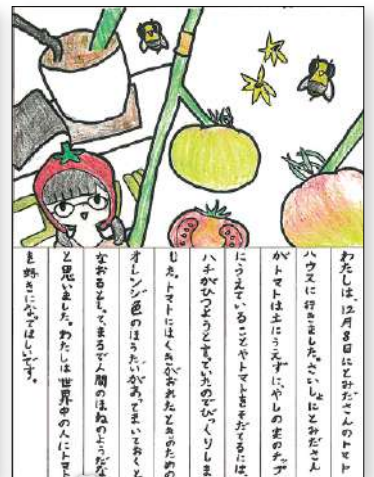 わたしは、12月8日にとみださんのトマト
ハウスに行きました。さいしょにとみださん
がトマトは土にうえずに、やしの実のチップ
にうえていることやトマトをそだてるには、
ハチがひつようと言っていたのでびっくりしま
した。トマトにはくきがおれたときのための
オレンジ色のほうたいがあってまいておくと
なおるとして、まるで人間のほねのようだな
と思いました。わたしは世界中の人にトマト
を好きになってほしいです。